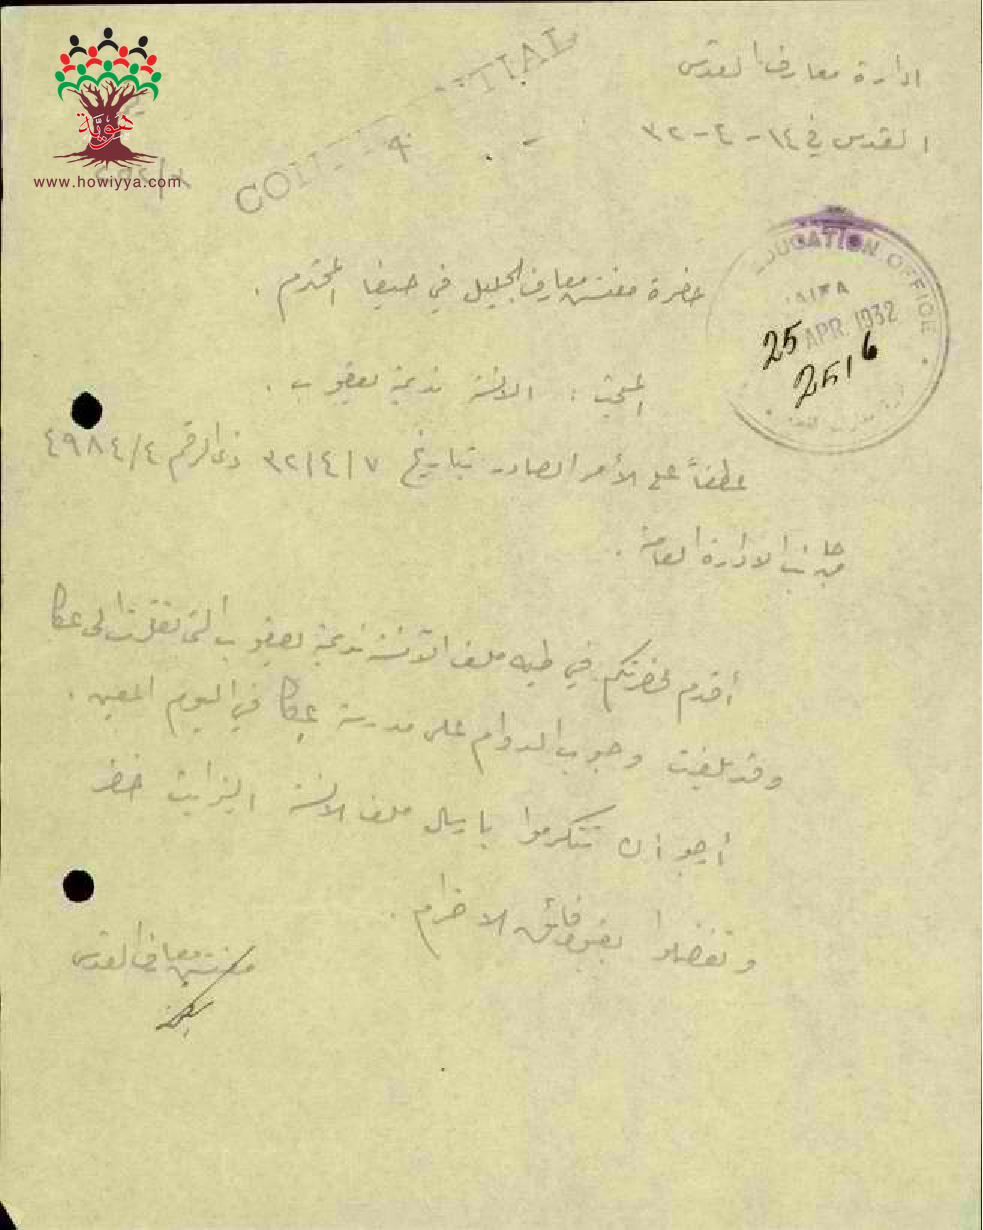 هوية
www.howiyya.com
CONFIDENTIAL
ادارة معارف القدس
القدس في ١٤-٤-٣٢
EDUCATION OFFICE
HAIFA
25 APR 1932
2516
حضرة مفتش معارف الجليل في حيفا المحترم .
المبحث : الآنسة نديمة يعقوب .
عطفاً على الأمر الصادر بتاريخ ٣٢/٤/٧ ذي الرقم ٤٩٨٤/٤
من جانب الادارة العامة .
أقدم لحضرتكم في طيه ملف الآنسة نديمة يعقوب التي نقلت الى عكا
وقد بلغت وجوب الدوام على مدرسة عكا في اليوم المعين .
أرجو أن تتكرموا بارسال ملف الآنسة اليزابيث خضر
وتفضلوا بقبول فائق الاحترام .
مفتش معارف القدس